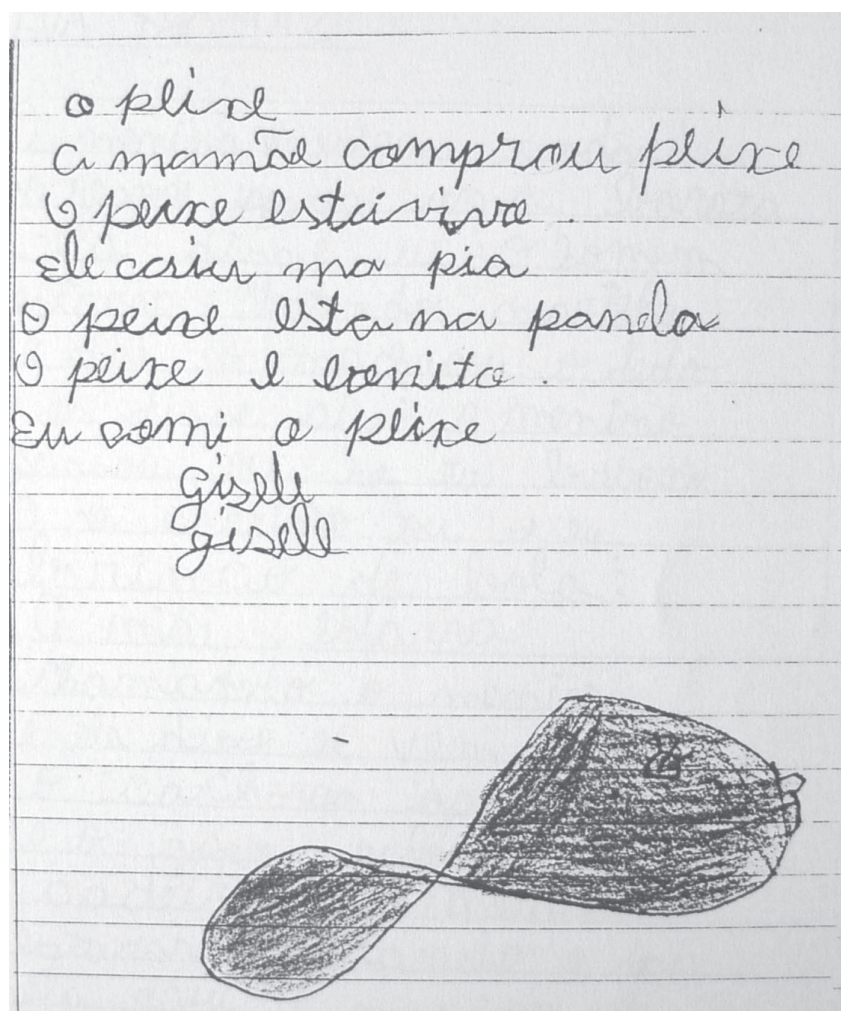 o peixe
A mamãe comprou peixe
O peixe estáivivo.
Ele caiu ma pia
O peixe esta na panela
O peixe e bonito.
Eu comi o peixe
Gisele
gisele